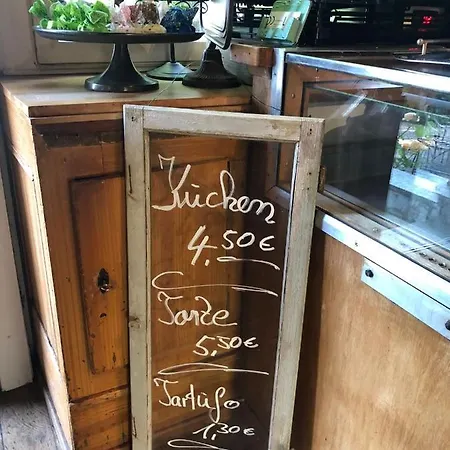 Kuchen
4.50€
Torte
5.50€
Tartufo
1.30€